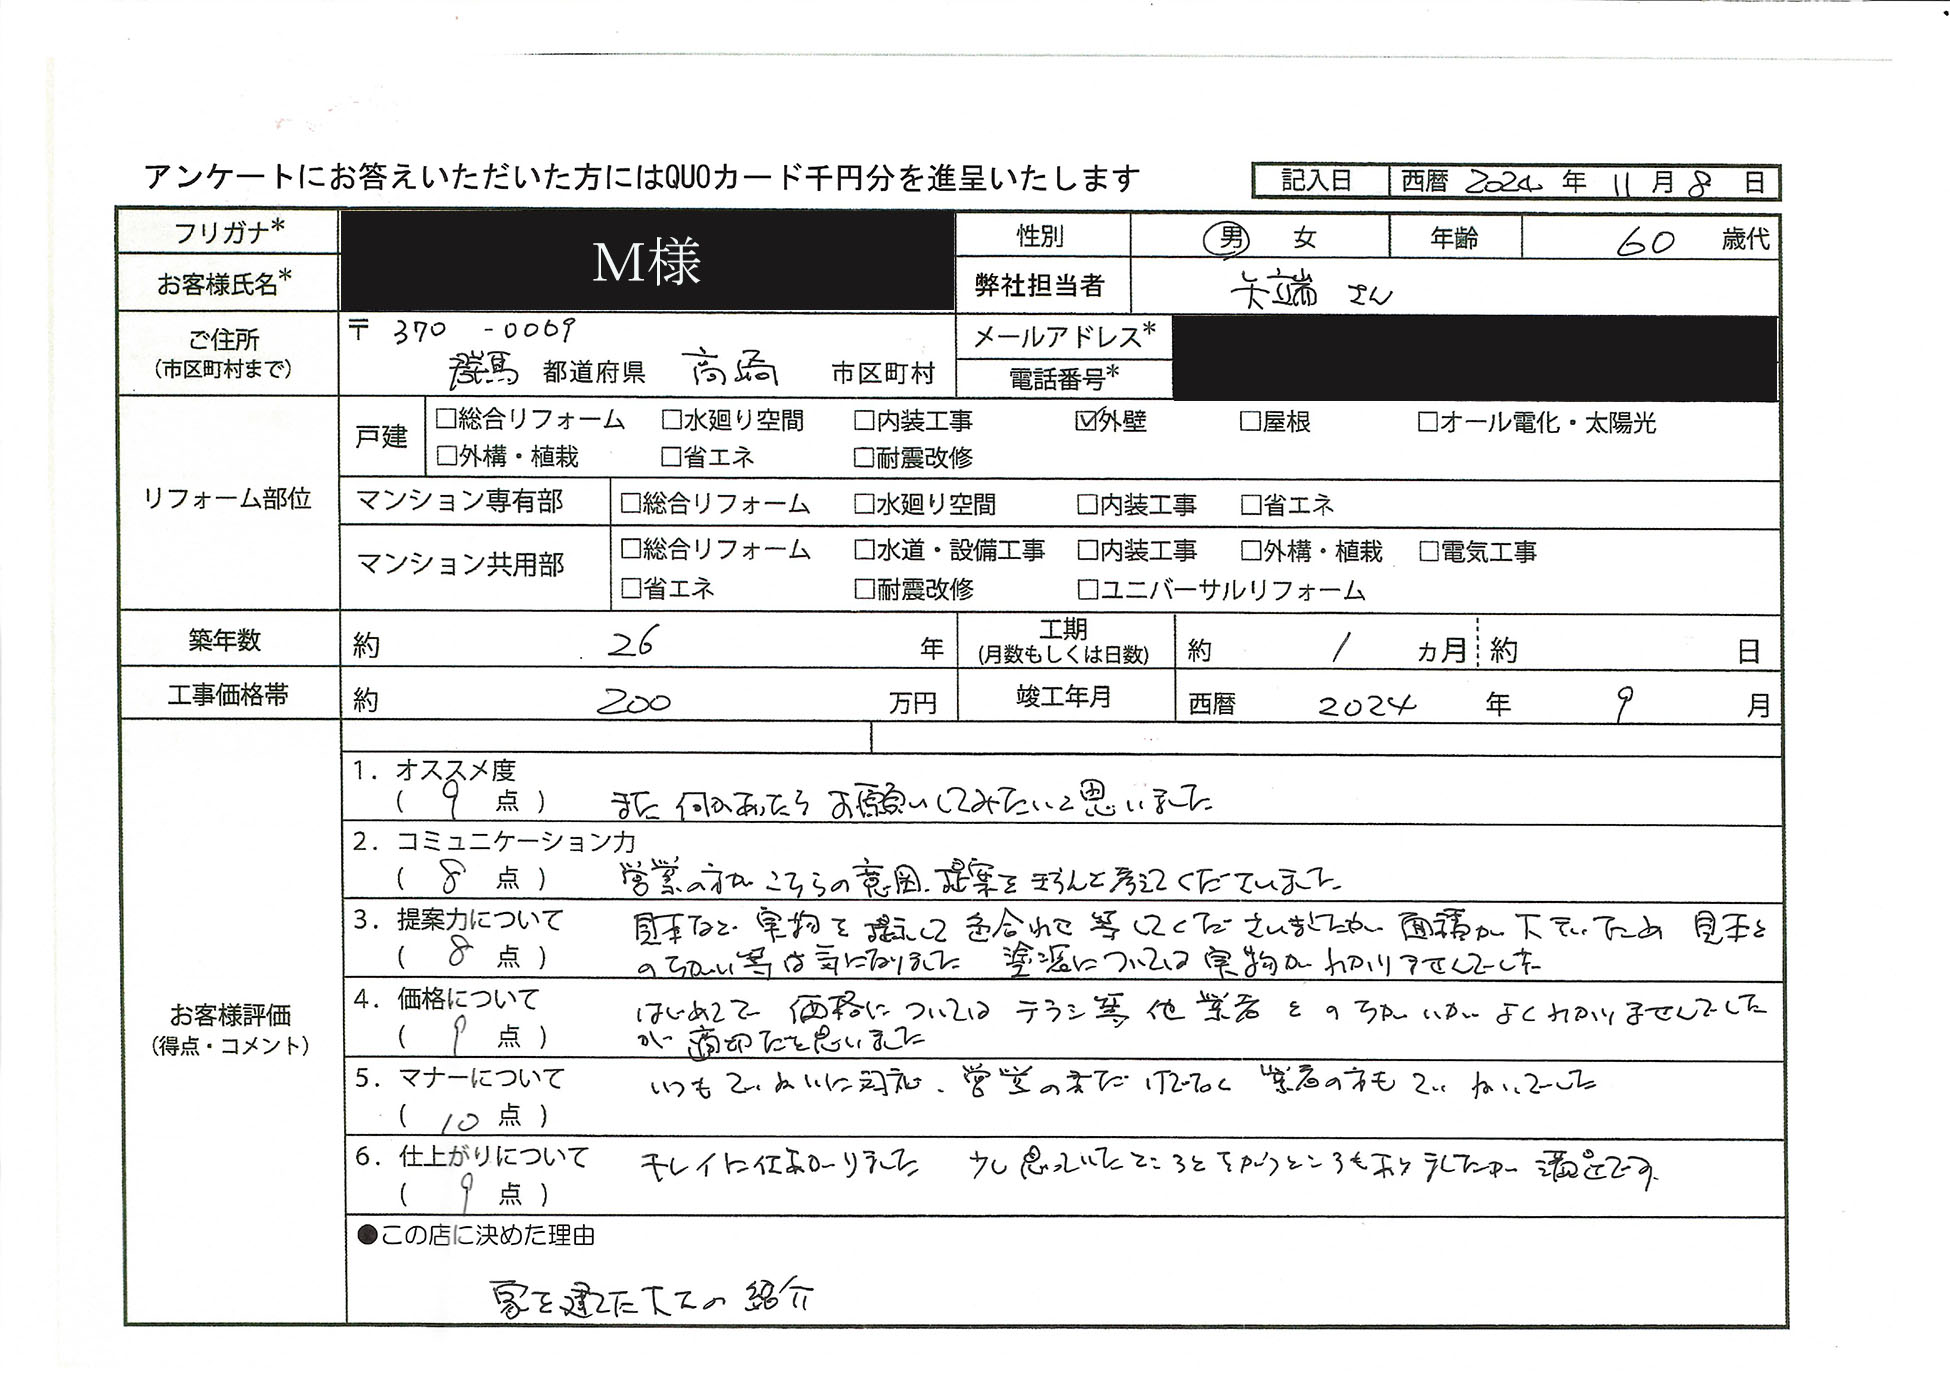 アンケートにお答えいただいた方にはQUOカード千円分を進呈いたします
記入日 西暦 2024 年 11 月 8 日
フリガナ*
お客様氏名*
M様
性別 男 女 年齢 60 歳代
弊社担当者 矢端 さん
ご住所
(市区町村まで)
〒 370 -0069
群馬 都道府県 高崎 市区町村
メールアドレス*
電話番号*
リフォーム部位
戸建 □総合リフォーム □水廻り空間 □内装工事 ☑外壁 □屋根 □オール電化・太陽光
□外構・植栽 □省エネ □耐震改修
マンション専有部 □総合リフォーム □水廻り空間 □内装工事 □省エネ
マンション共用部 □総合リフォーム □水道・設備工事 □内装工事 □外構・植栽 □電気工事
□省エネ □耐震改修 □ユニバーサルリフォーム
築年数 約 26 年 工期 (月数もしくは日数) 約 1 ヵ月 約 日
工事価格帯 約 200 万円 竣工年月 西暦 2024 年 9 月
お客様評価
(得点・コメント)
1. オススメ度
( 9 点 ) また何かあったらお願いしてみたいと思いました
2. コミュニケーション力
( 8 点 ) 営業の方がこちらの意図、提案をきちんと考えてくださいました
3. 提案力について 見本など、実物を提示して色合わせ等してくださいましたが 面積が大きいため 見本と
( 8 点 ) のちがい等は気になりました 塗液については実物がわかりませんでした
4. 価格について はじめてで 価格については チラシ等 他業者とのちがいがよくわかりませんでした
( 9 点 ) が 適切だと思いました
5. マナーについて いつもていねいに対応、営業の方だけでなく 業者の方も ていねいでした
( 10 点 )
6. 仕上がりについて キレイに仕あがりました 少し思っていたところとちがうところもありましたが 満足です。
( 9 点 )
●この店に決めた理由
家を建てた大工の紹介